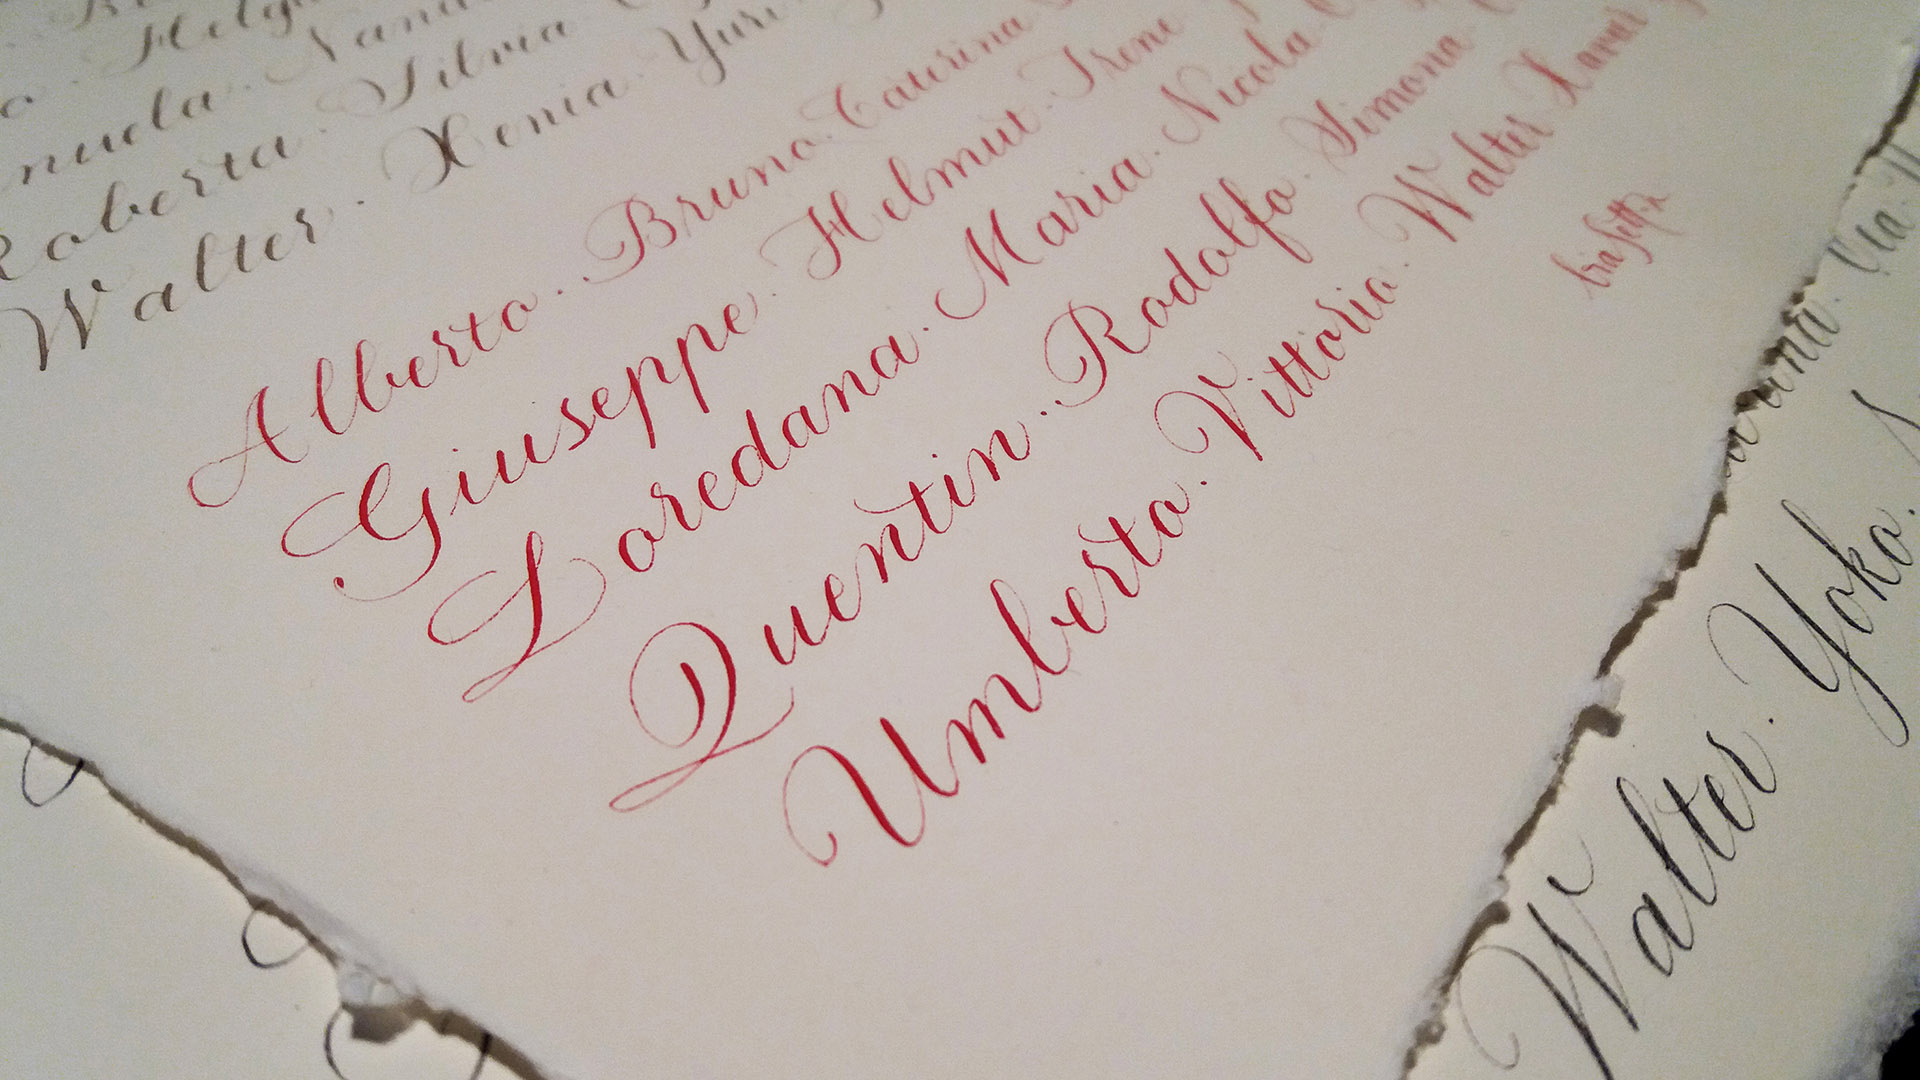 Helga
Nand
nuela .
Roberta . Silvia
Walter . Xenia . Yuri
Alberto . Bruno . Caterina
Giuseppe . Helmut . Irene
Loredana . Maria . Nicola .
Quentin . Rodolfo . Simona
Umberto . Vittorio . Walter
Walter . Yoko .